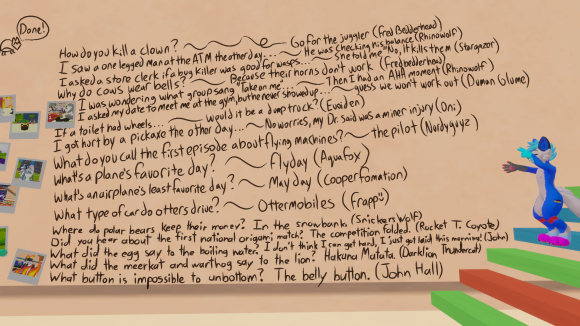 Done!
How do you kill a clown? Go for the juggler (Fred Bedderhead)
I saw a one legged man at the ATM the other day.... He was checking his balance (Rhinowolf)
I asked a store clerk if a bug killer was good for wasps... She told me "No, it kills them (Stargazor)
Why do cows wear bells? Because their horns don't work (Fredbedderhead)
I was wondering what group sang "Take on me... Then I had an AHA moment (Rhinowolf)
I asked my date to meet me at the gym, but she never showed up... guess we won't work out (Duman Glume)
If a toilet had wheels... would it be a dump truck? (Evaiden)
I got hurt by a pickaxe the other day... No worries, my Dr. said was a miner injury (Oni)
What do you call the first episode about flying machines? the pilot (Nordyguyz)
What's a plane's favorite day? Flyday (Aquafox)
What's an airplane's least favorite day? May day (Cooperfomation)
What type of car do otters drive? Ottermobiles (Frapp)
Where do polar bears keep their money? In the snowbank. (Snickers Wolf)
Did you hear about the first national origami match? The competition folded. (Rocket T. Coyote)
What did the egg say to the boiling water? I don't think I can get hard, I just got laid this morning! (John)
What did the meerkat and warthog say to the lion? Hakuna Matata. (Darklion Thundercat)
What button is impossible to unbottom? The belly button. (John Hall)